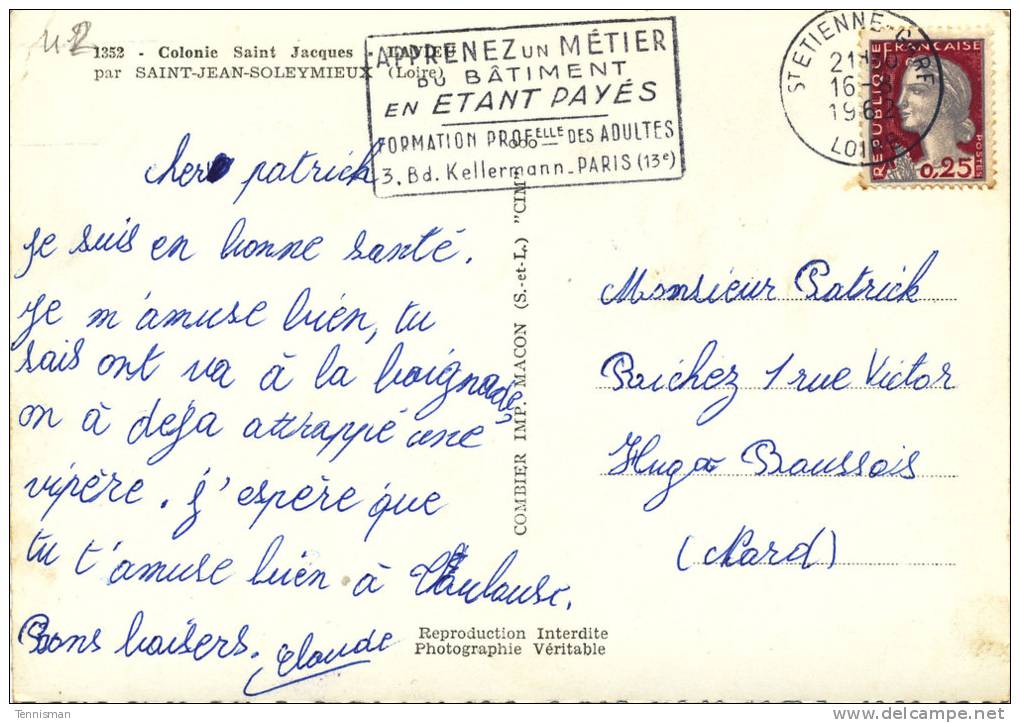 1352 - Colonie Saint Jacques - LAVIEU
par SAINT-JEAN-SOLEYMIEUX (Loire)
APPRENEZ UN MÉTIER
DU BÂTIMENT
EN ETANT PAYÉS
FORMATION PROFELLE DES ADULTES
3, Bd. Kellermann - PARIS (13e)
ST ETIENNE-GARE
21H
16-8
1962
LOIRE
REPUBLIQUE
FRANÇAISE
POSTES
0,25
cher patrick
je suis en bonne santé.
je m'amuse bien, tu
sais ont va à la baignade,
on à deja attrappé une
vipère. j'espère que
tu t'amuse bien à Toulouse.
Bons baisers. Claude
COMBIER IMP. MACON (S.-et-L.) "CIM"
Monsieur Patrick
Raichez 1 rue Victor
Hugo Boussois
(Nord)
Reproduction Interdite
Photographie Véritable
Tennisman
www.delcampe.net